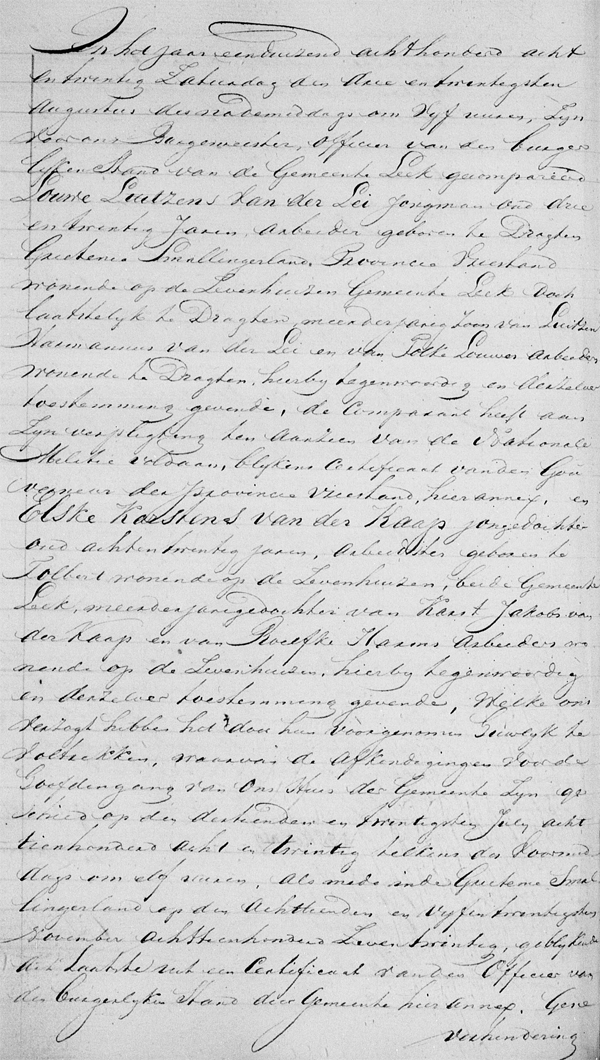 In het jaar eenduizend achthonderd acht
en twintig Zaturdag den drie en twintigsten
Augustus des nademiddags om vyf uuren, Zyn
voor ons Burgemeester, Officier van den burger
lyken Stand van de Gemeente Leek gecompareerd
Louwe Luitzens van der Lei jongman oud drie
en twintig Jaren, Arbeider geboren te Dragten
Grietenie Smallingerland Provincie Vriesland
wonende op de Zevenhuizen Gemeente Leek doch
laatstelyk te Dragten, meerderjarig zoon van Luitzen
Harmannus van der Lei en van Tolke Louwes Arbeiders
wonende te Dragten, hierby tegenwoordig en derzelver
toestemming gevende, de Comparant heeft aan
Zyn verpligting ten aanzien van de Nationale
Militie voldaan, blykens Certificaat van den Gou
verneur der Provincie Vriesland, hier annex, en
Elske Karstens van der Kaap jongedochter
oud achtentwintig jaren, Arbeidster geboren te
Tolbert wonende op de Zevenhuizen, beide Gemeente
Leek, meerderjarige dochter van Karst Jakobs van
der Kaap en van Roelfke Harms Arbeiders wo
nende op de Zevenhuizen, hierby tegenwoordig
en derzelver toestemming gevende, Welke ons
verzogt hebben het door hun voorgenomen Huwelyk te
voltrekken, waarvan de Afkondigingen voor de
Hoofdengang van Ons Huis der Gemeente Zyn ge
schied op den en twintigsten July acht
tienhonderd acht en twintig telkens des voormid
dags om elf uuren, Als mede in de Grietenie Smal
lingerland op den Achttienden en vyfentwintigsten
November achttienhonderd Zeventwintig, geblykende
dit laatste uit een Certificaat van den Officier van
den burgerlyken Stand dier Gemeente hier annex. Gene
verhindering